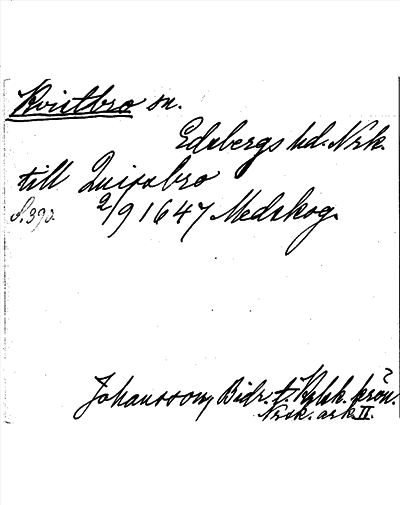 Kvistbro sn.
Edsbergs hd. Nrk.
till Quissbro
s. 393. 2/9 1647 Medskog.
Johansson, Bidr. t. Kykk. krön.
Nrsk. ark. II.